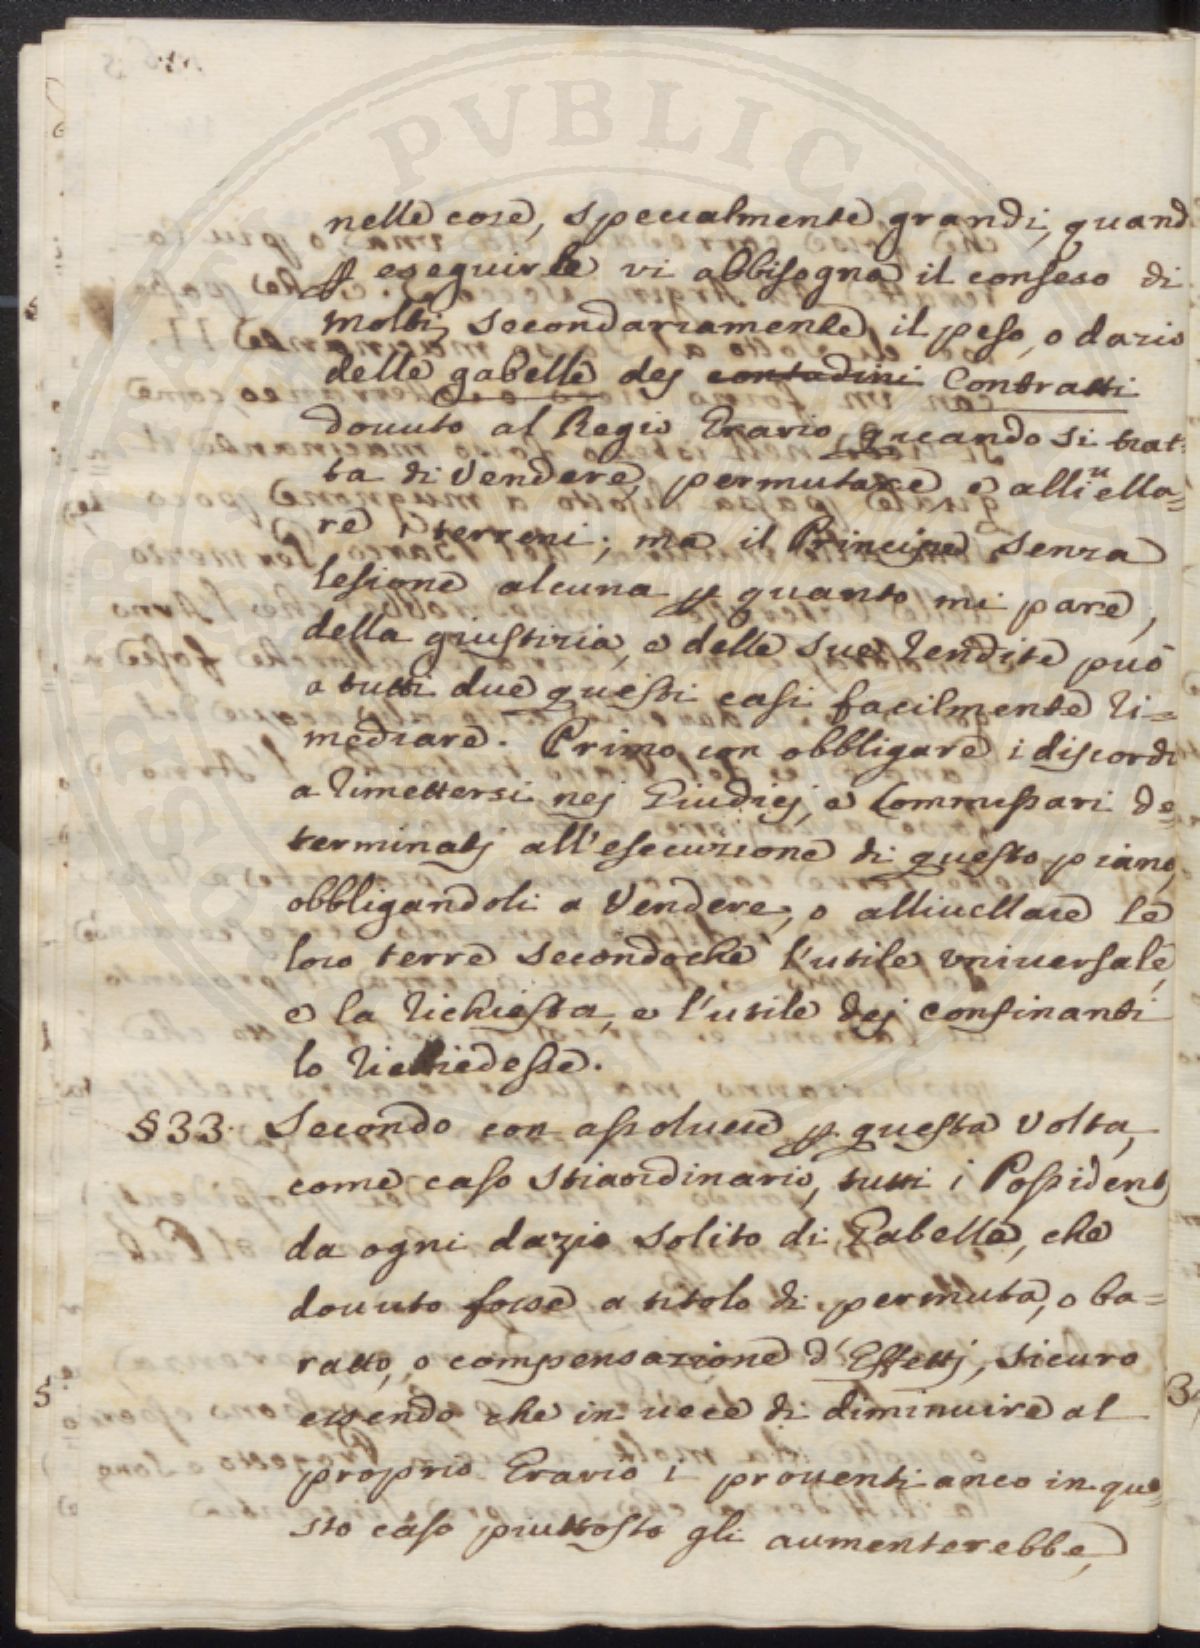 nelle cose, specialmente grandi, quand
p eseguirle vi abbisogna il conseso di
molti, secondariamente il peso, o dazio
delle gabelle dej contadini Contratti
douuto al Regio Erario quando si trat-
ta di Vendere, permutare e alliuella=
re i terreni; ma il Principe senza
lesione alcuna p quanto mi pare,
della giustizia, e delle sue rendite può
a tutti due questi casi facilmente ri=
mediare. Primo con obbligare i discordi
a rimettersi nej Giudicj, e Commissari de=
terminatj all'esecuzione di questo piano,
obbligandoli a Vendere, o alliuellare le
loro terre secondoche l'utile vniuersale,
e la richiesta, e l'utile dej confinanti
lo richiedesse.
§ 33. Secondo con assoluere p questa Volta,
come caso straordinario, tutti i Possidentj
da ogni dazio solito di Gabelle, che
douuto fosse a titolo di permuta, o ba=
ratto, o compensazione d'Effettj, sicuro
essendo che in uece di diminuire al
proprio Erario i prouenti anco in que=
sto caso piuttosto gli aumenterebbe,